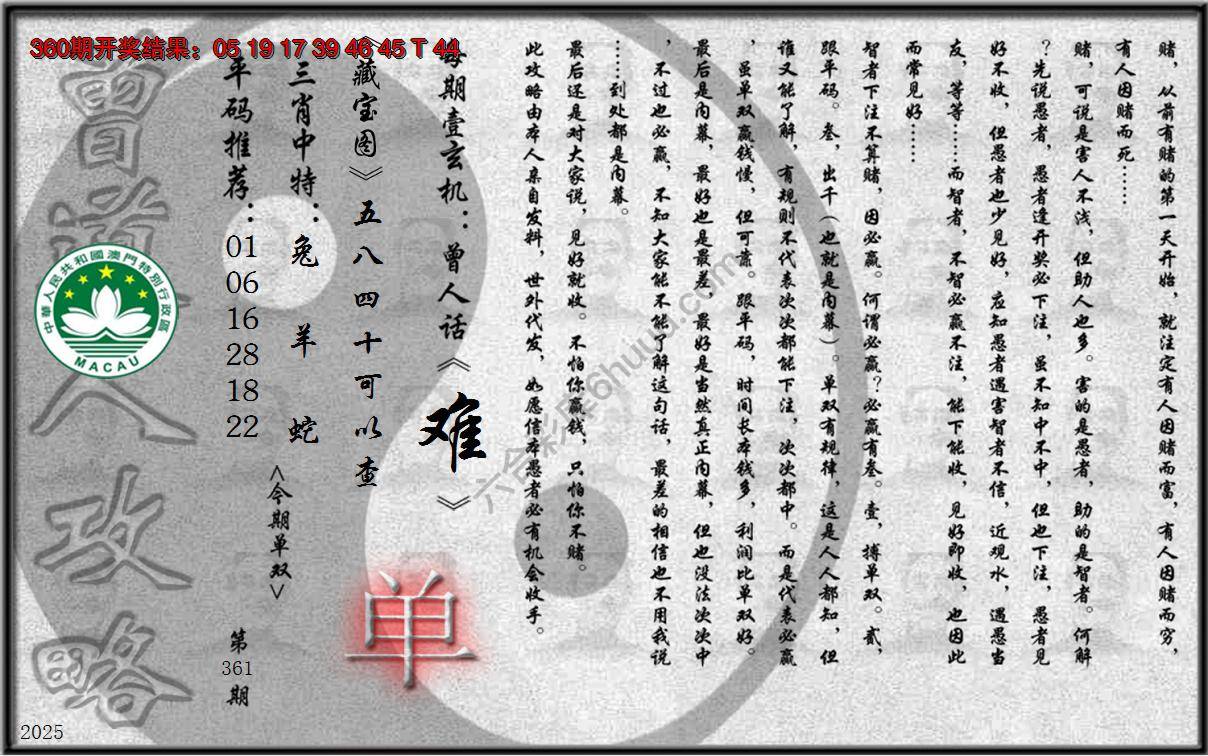 360期开奖结果：05 19 17 39 46 45 T 44
赌，从前有赌的第一天开始，就注定有人因赌而富，有人因赌而穷，
有人因赌而死……
赌，可说是害人不浅，但助人也多。害的是愚者，助的是智者。何解
？先说愚者，愚者逢开奖必下注，虽不知中不中，但也下注，愚者见
好不收，但愚者也少见好，应知愚者遇害智者不信，近观水，遇愚当
友，等等……而智者，不智必赢不注，能下能收，见好即收，也因此
而常见好……
智者下注不算赌，因必赢。何谓必赢？必赢有叁。壹，搏单双。贰，
跟平码。叁，出千（也就是内幕）。单双有规律，这是人人都知，但
谁又能了解，有规则不代表次次都能下注，次次都中。而是代表必赢
，虽单双赢钱慢，但可靠。跟平码，时间长本钱多，利润比单双好。
最后是内幕，最好也是最差，最好是当然真正内幕，但也没法次次中
，不过也必赢，不知大家能不能了解这句话，最差的相信也不用我说
……到处都是内幕。
最后还是对大家说，见好就收。不怕你赢钱，只怕你不赌。
此攻略由本人亲自发料，世外代发，如愿信本愚者必有机会收手。
每期壹玄机：曾人话《难》
《藏宝图》五八四十可以查
单
三肖中特：兔 羊 蛇
<今期单双>
平码推荐：01 06 16 28 18 22
第361期
曾道人攻略
中華人民共和國澳門特別行政區
MACAU
六合彩库6huuu.com
2025